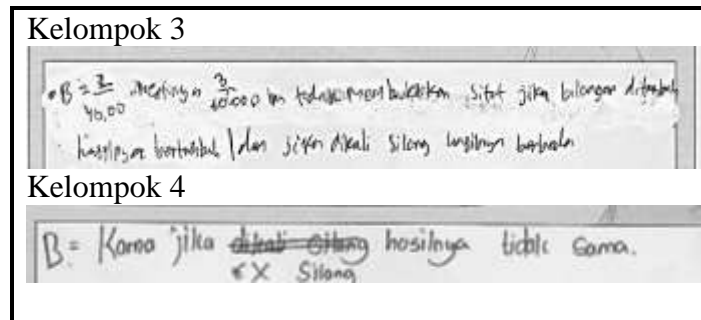 Kelompok 3
• B = 3/40,00 3/40.000 tidak membuktikan sifat jika bilangan ditambah
hasilnya bertambah dan jika dikali silang hasilnya berbeda
Kelompok 4
B = Karna jika dikali silang hasilnya tidak sama.
x Silang